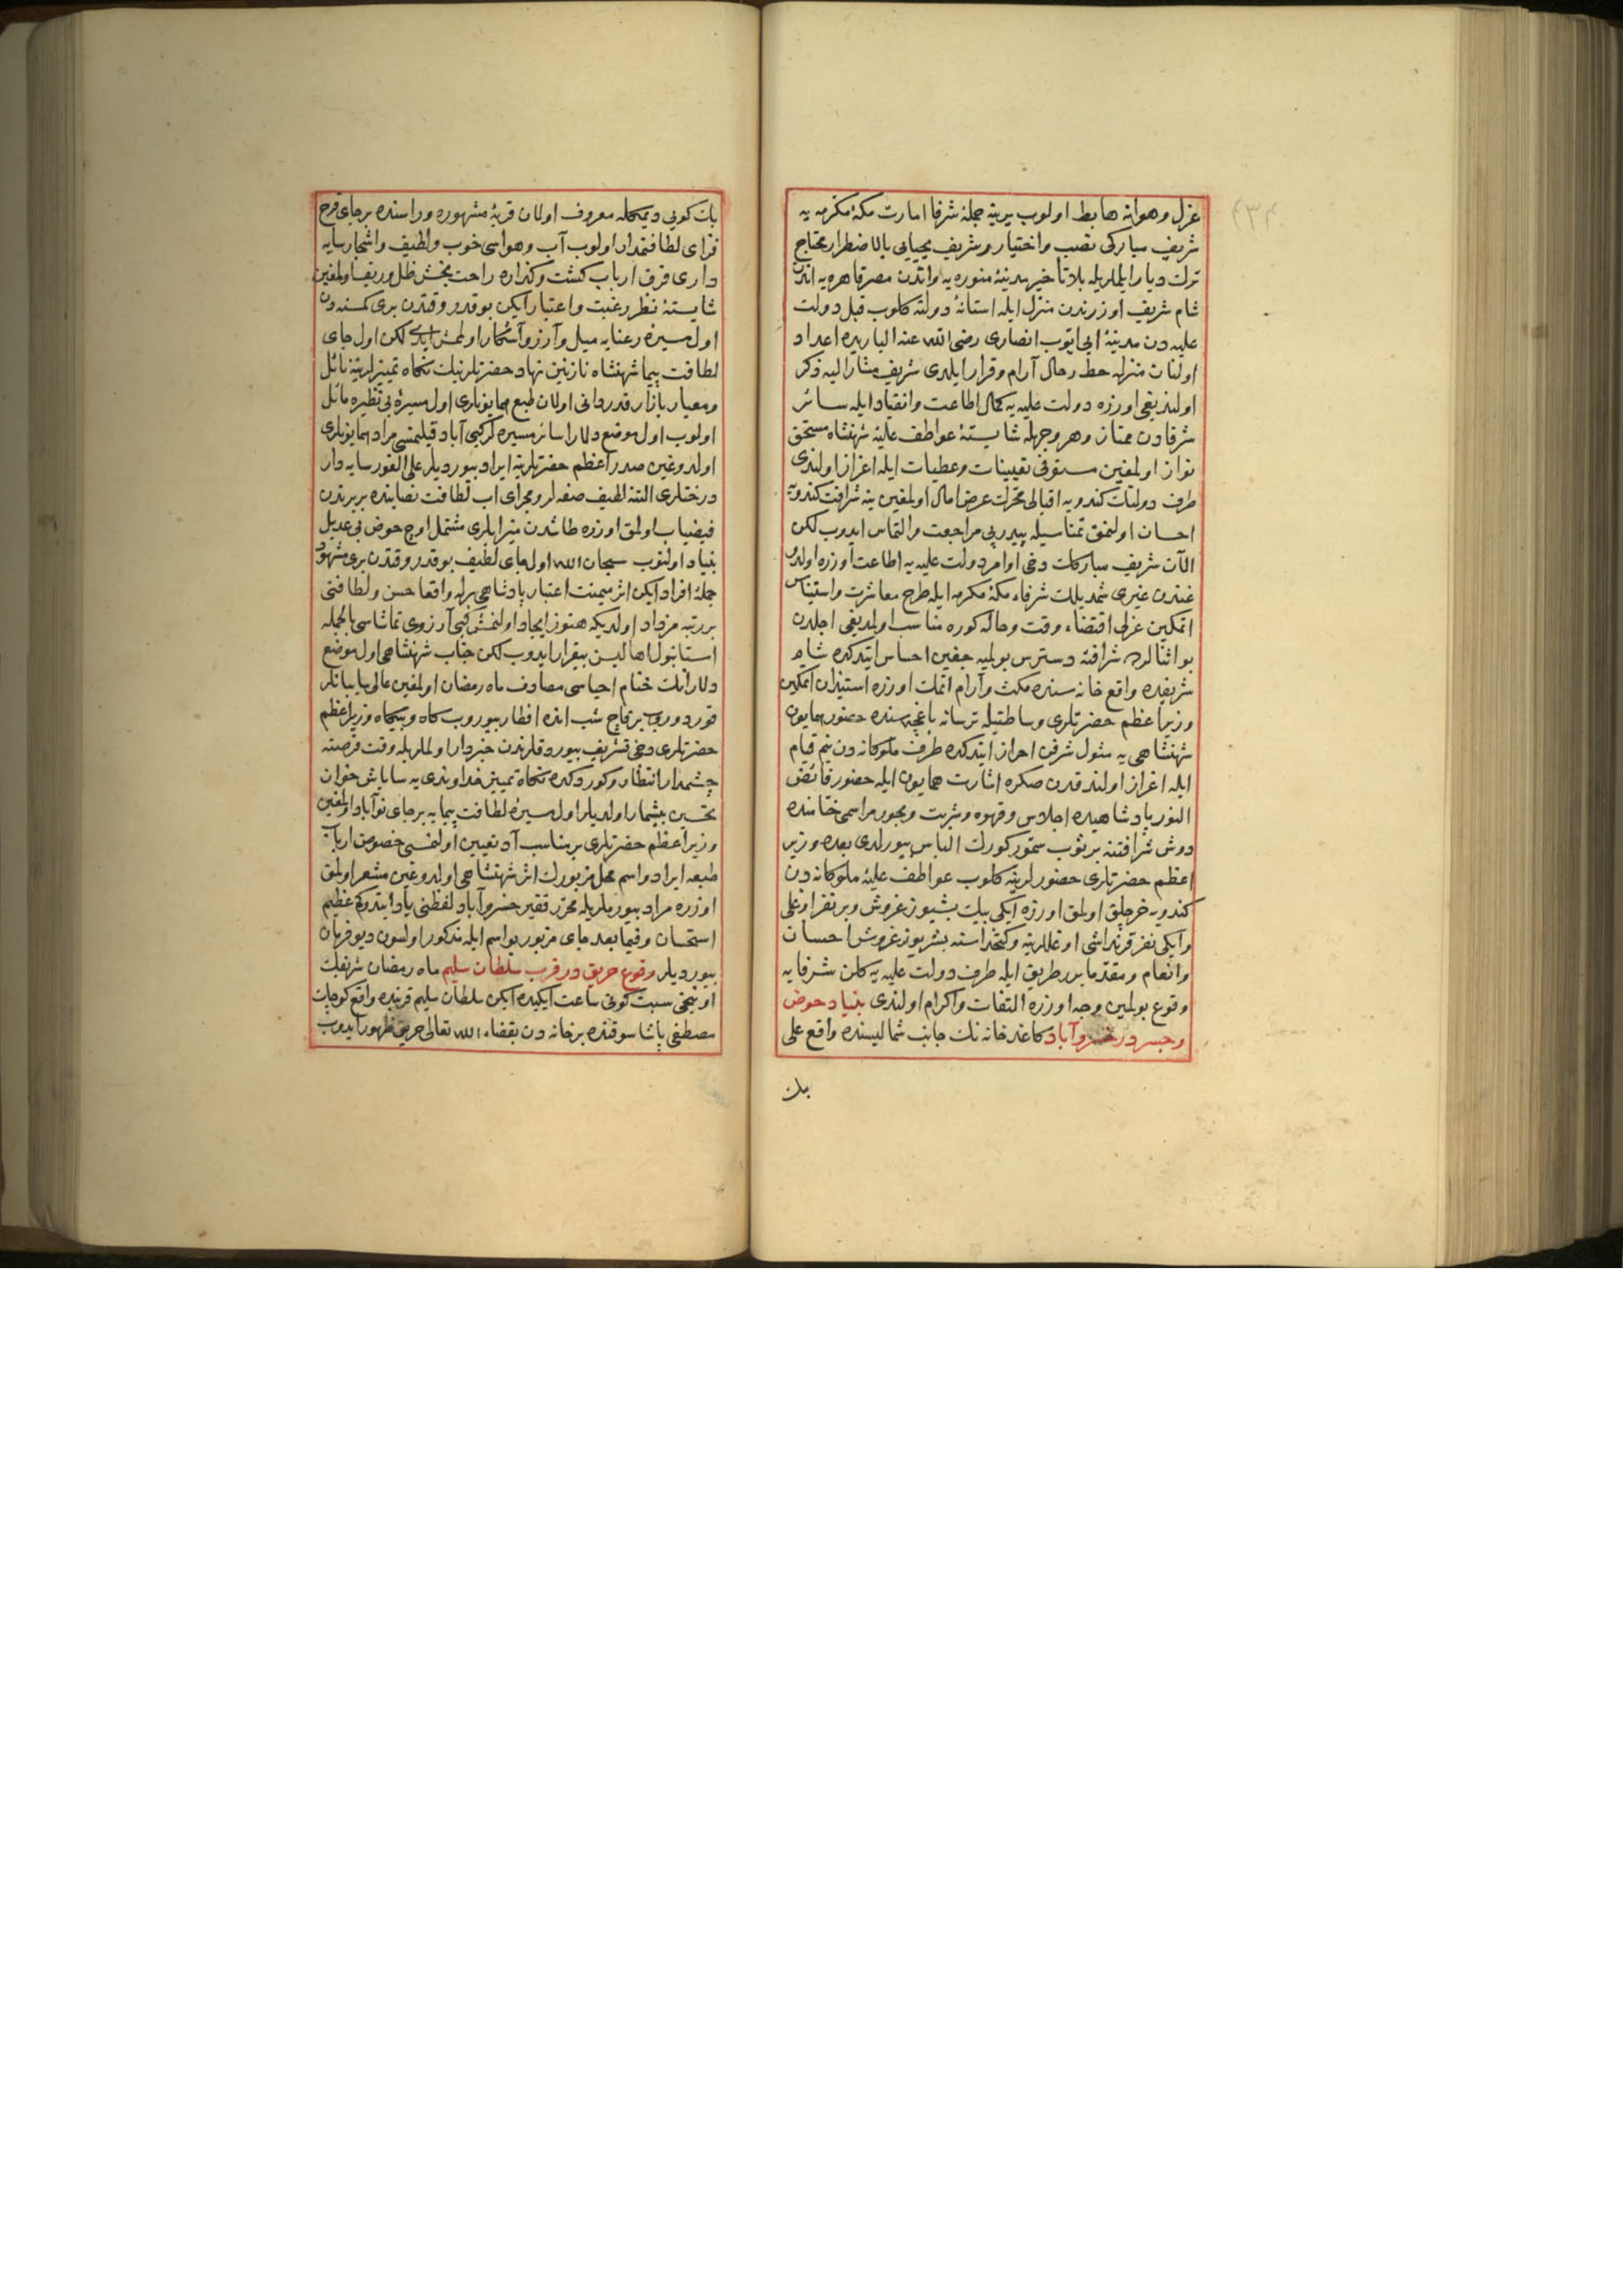 عزل وهوانه هابط اولوب يرينه جملۀ شرفا امارت مكۀ مكرمه يه
شريف مباركى نصب واختيار وشريف يحيايى بالاضطرار محتاج
ترك ديار ايلملريله بلا تأخير مدينۀ منوره يه واندن مصر قاهره يه اندن
شام شريف اوزرندن منزل ايله استانۀ دولته كلوب قبل دولت
عليه دن مدينۀ ابى ايوب انصارى رضى الله عنه الباريده اعداد
اولنان منزله حط رحال آرام وقرار ايلدى شريف مشار اليه ذكر
اولنديغى اوزره دولت عليه يه كمال اطاعت وانقياد ايله سائر
شرفادن ممتاز وهر وجهله شايستۀ عواطف عليۀ شهنشاه مستحق
نواز اولمغين مستوفى تعيينات وعطيات ايله اعزاز اولندى
طرف دولتك كندويه اقبالى محرك عرض امال اولمغين ينه شرافت كندويه
احسان اولنمق تمناسيله پيدرپى مراجعت والتماس ايدوب لكن
الآن شريف مباركك دخى اوامر دولت عليه يه اطاعت اوزره اولدو
غندن غيرى شمديلك شرفاء مكۀ مكرمه ايله طرح معاشرت واستيناس
اتمكين عزلى اقتضاء وقت وحاله كوره مناسب اولمديغى اجلدن
بو اثنالرده شرافته دسترس بولميه جغين احساس ايتدكده شام
شريفده واقع خانه سنده مكث وآرام اتمك اوزره استيذان اتمكين
وزير اعظم حضرتلرى وساطتيله ترسانه باغچه سنده حضور همايون
شهنشاهى يه مثول شرفن احراز ايتدكده طرف ملوكانه دن نيم قيام
ايله اعزاز اولندقدن صكره اشارت همايون ايله حضور فائض
النور پادشاهيده اجلاس وقهوه وشربت وبخور مراسمى ختامنده
دوش شرافتنه بر ثوب سمور كورك الباس بيورلدى بعده وزير
اعظم حضرتلرى حضورلرينه كلوب عواطف عليۀ ملوكانه دن
كندويه خرجلق اولمق اوزره ايكى بيك بشيوز غروش وبر نفر اوغلى
وايكى نفر قرنداشى اوغللرينه وكتخداسنه بشر يوز غروش احسان
وانعام ومقدما بر طريق ايله طرف دولت عليه يه كلن شرفايه
وقوع بولمين وجه اوزره التفات واكرام اولندى بنياد حوض
وجسر در خسروآباد كاغدخانه نك جانب شماليسنده واقع على
بك
بك كويى ديمكله معروف اولان قريۀ مشهوره وراسنده بر جاى فرح
فزاى لطافتمدار اولوب آب وهواسى خوب ولطيف واشجار سايه
دارى فرق ارباب كشت وكذاره راحت بخش ظل وريف اولمغين
شايستۀ نظر رغبت واعتبار ايكن بو قدر وقتدن برى كمسنه دن
اول مسيرۀ رعنايه ميل وآرزو آشكار اولمش ايدى لكن اول جاى
لطافت پيما شهنشاه نازنين نهاد حضرتلرينك نكاه تمييزلرينه نائل
ومعيار بازار قدردانى اولان طبع همايونلرى اول مسيرۀ بى نظيره مائل
اولوب اول موضع دلارا سائر مسيره لركبى آباد قيلنمسى مراد همايونلرى
اولدوغين صدر اعظم حضرتلرينه ايراد بيورديلر على الفور سايه دار
درختلرى التنه لطيف صفه لر ومجراى اب لطافت نصابنده بر برندن
فيضياب اولمق اوزره طاشدن ميزابلرى مشتمل اوچ حوض بى عديل
بنياد اولنوب سبحان الله اول جاى لطيف بو قدر وقتدن برى مشهود
جملۀ افراد ايكن اثر ميمنت اعتبار پادشاهى برله واقعا حسن ولطافتى
بر رتبه مزداد اولديكه هنوز ايجاد اولنمش كبى آرزوى تماشاسى بالجمله
استانبول اهاليسن بيقرار ايدوب لكن جناب شهنشاهى اول موضع
دلارانك ختام احياسى مصادف ماه رمضان اولمغين عالى سايبانلر
قوردوروب بر قاچ شب انده افطار بيوروب كاه وبيكاه وزير اعظم
حضرتلرى دخى تشريف بيوردقلرندن خبردار اولملريله وقت فرصته
چشمدار انتظار وكوردكده نكاه تمييز خداوندى يه ساباش خوان
تحسين بيشمار اولديلر اول مسيرۀ لطافت پيمايه بر جاى نوآباد اولمغين
وزير اعظم حضرتلرى بر مناسب آد تعيين اولنمسى خصوصن ارباب
طبعه ايراد واسم محل مزبورك اثر شهنشاهى اولدوغين مشعر اولمق
اوزره مراد بيورملريله محرر فقير خسروآباد لفظنى ياد ايتدوكم عظيم
استحسان وفيما بعد جاى مزبور بو اسم ايله مذكور اولسون ديو فرمان
بيورديلر وقوع حريق در قرب سلطان سليم ماه رمضان شريفك
اونبحى سبت كونى ساعت ايكيده ايكن سلطان سليم قربنده واقع قوجه
مصطفى پاشا سوقنده بر خانه دن بقضاء الله تعالى حريق ظهور ايدوب